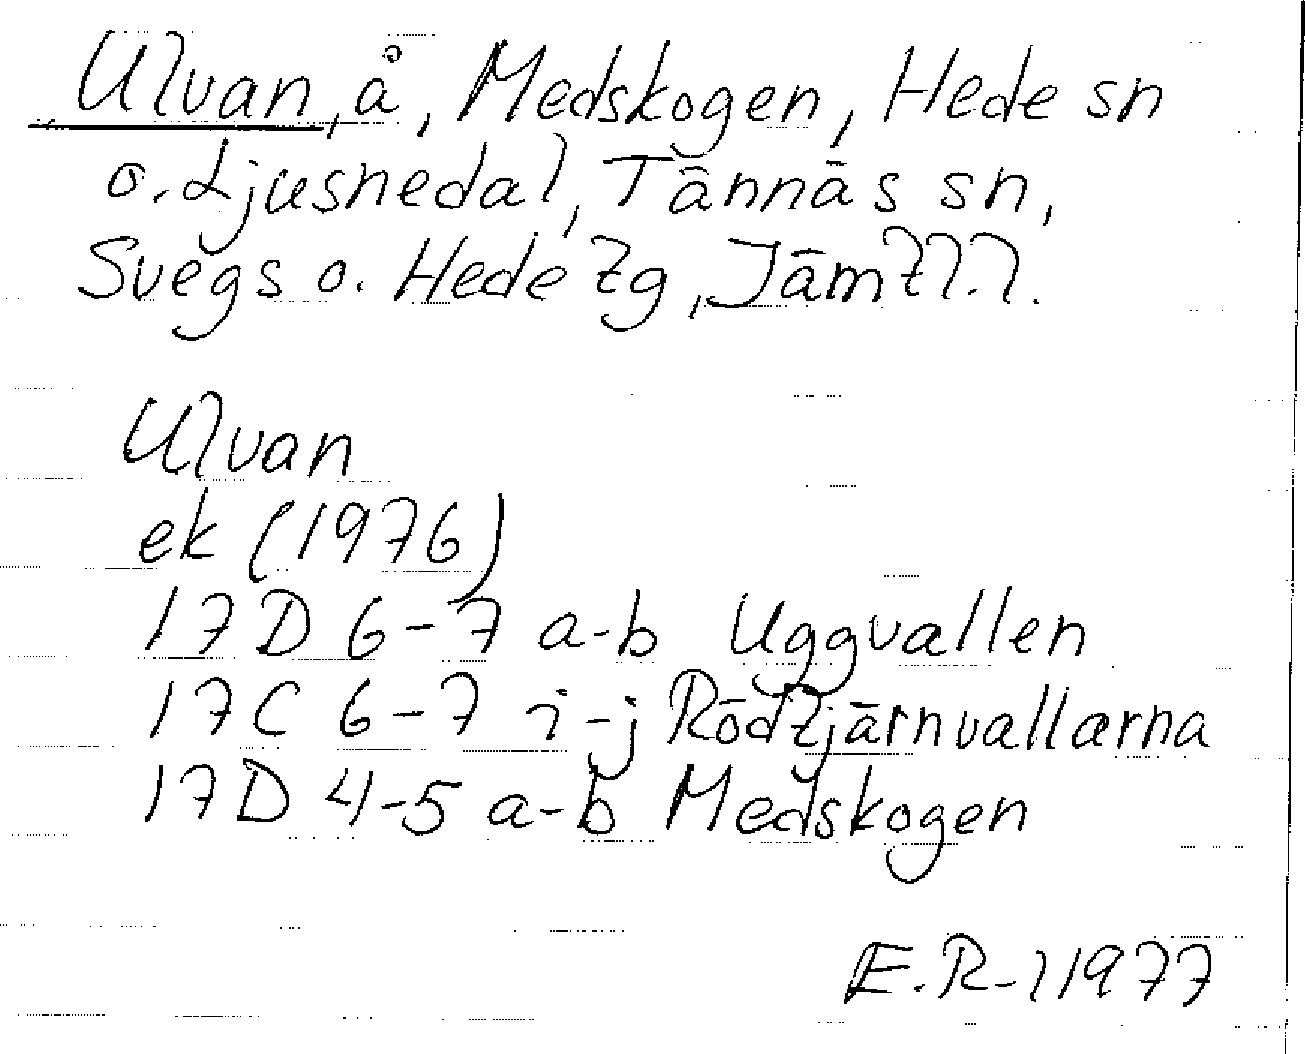 Ulvan, å, Medskogen, Hede sn
o. Ljusnedal, Tännäs sn,
Svegs o. Hede tg, Jämtl.l.
Ulvan
ek (1976)
17D 6-7 a-b Uggvallen
17C 6-7 i-j Rödtjärnvallarna
17D 4-5 a-b Medskogen
E.R-l 1977